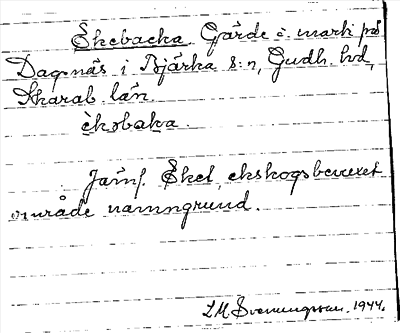 Ekebacka. Gärde o. mark på
Dagsnäs i Bjärka s:n, Gudh. hd,
Skarab. län.
èkəbaka.
Jämf. Eket, ekskogsbevuxet
område namngrund.
L M Svenungsson. 1944.